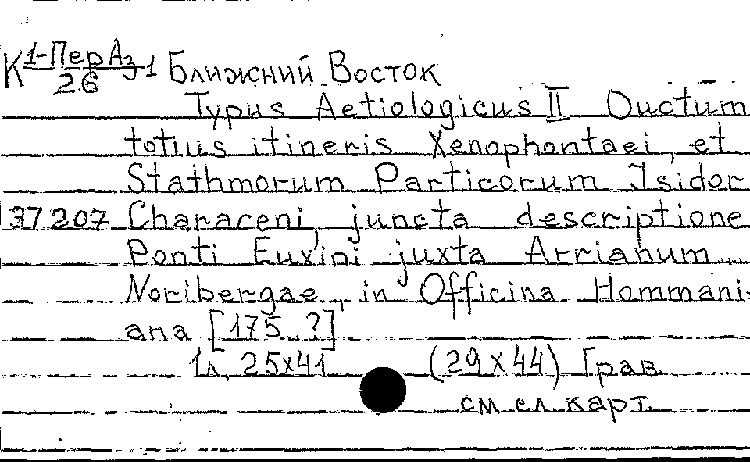 К 1-ПерАз-1 Ближний Восток
26
Typus Aetiologicus II Ductum
totius itineris Xenophontaei, et
Stathmorum Particorum Isidor
37207 Characeni, juncta descriptione
Ponti Euxini juxta Arrianum
Noribergae, in Officina Hommani-
ana [175.. ?]
1л. 25x41 (29x44) Грав.
см. сл. карт.